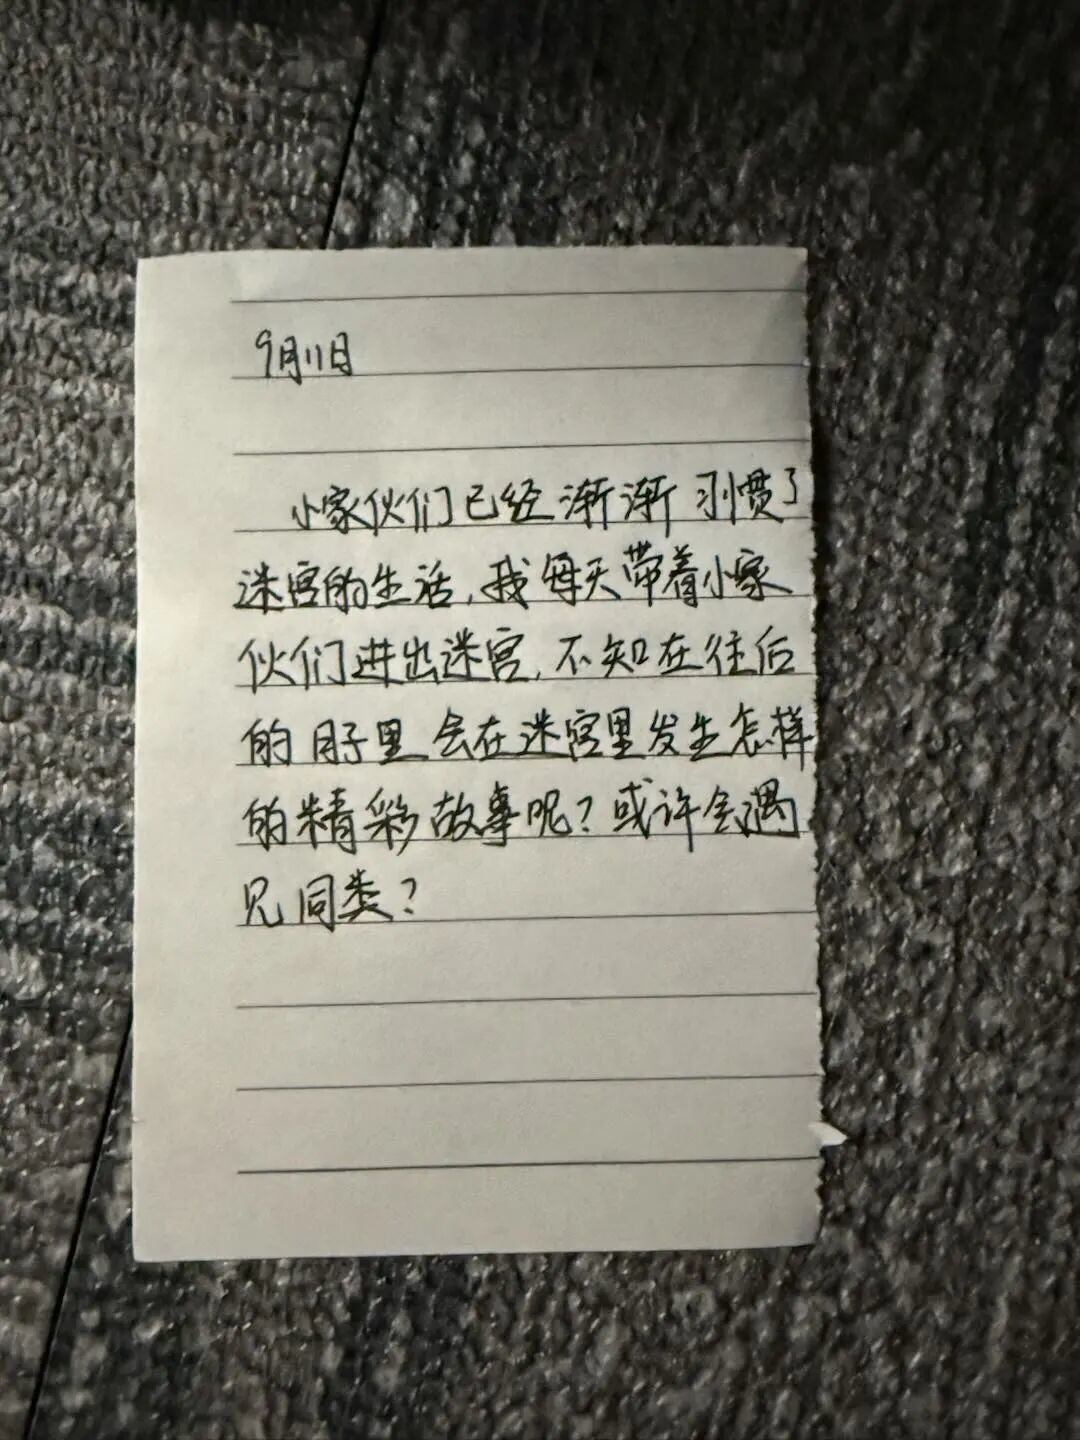 9月11日
小家伙们已经渐渐习惯了
迷宫的生活,我每天带着小家
伙们进出迷宫,不知在往后
的日子里会在迷宫里发生怎样
的精彩故事呢?或许会遇
见同类?